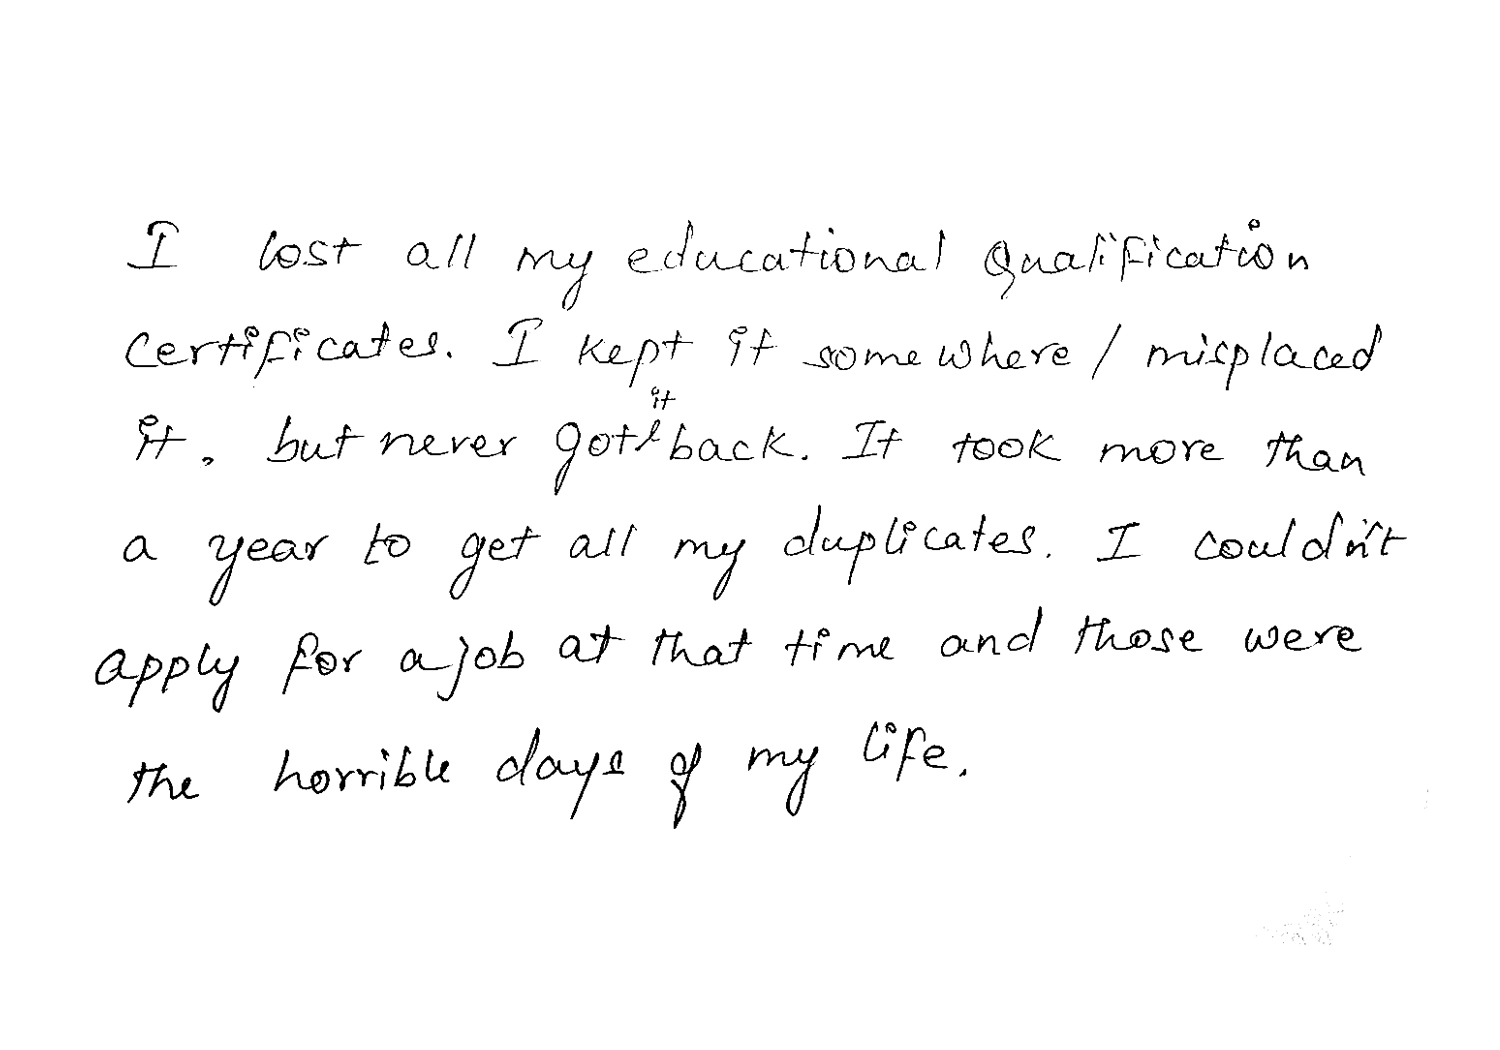 I lost all my educational qualification
certificates. I kept it somewhere / misplaced
it, but never got it back. It took more than
a year to get all my duplicates. I couldn't
apply for a job at that time and those were
the horrible days of my life.